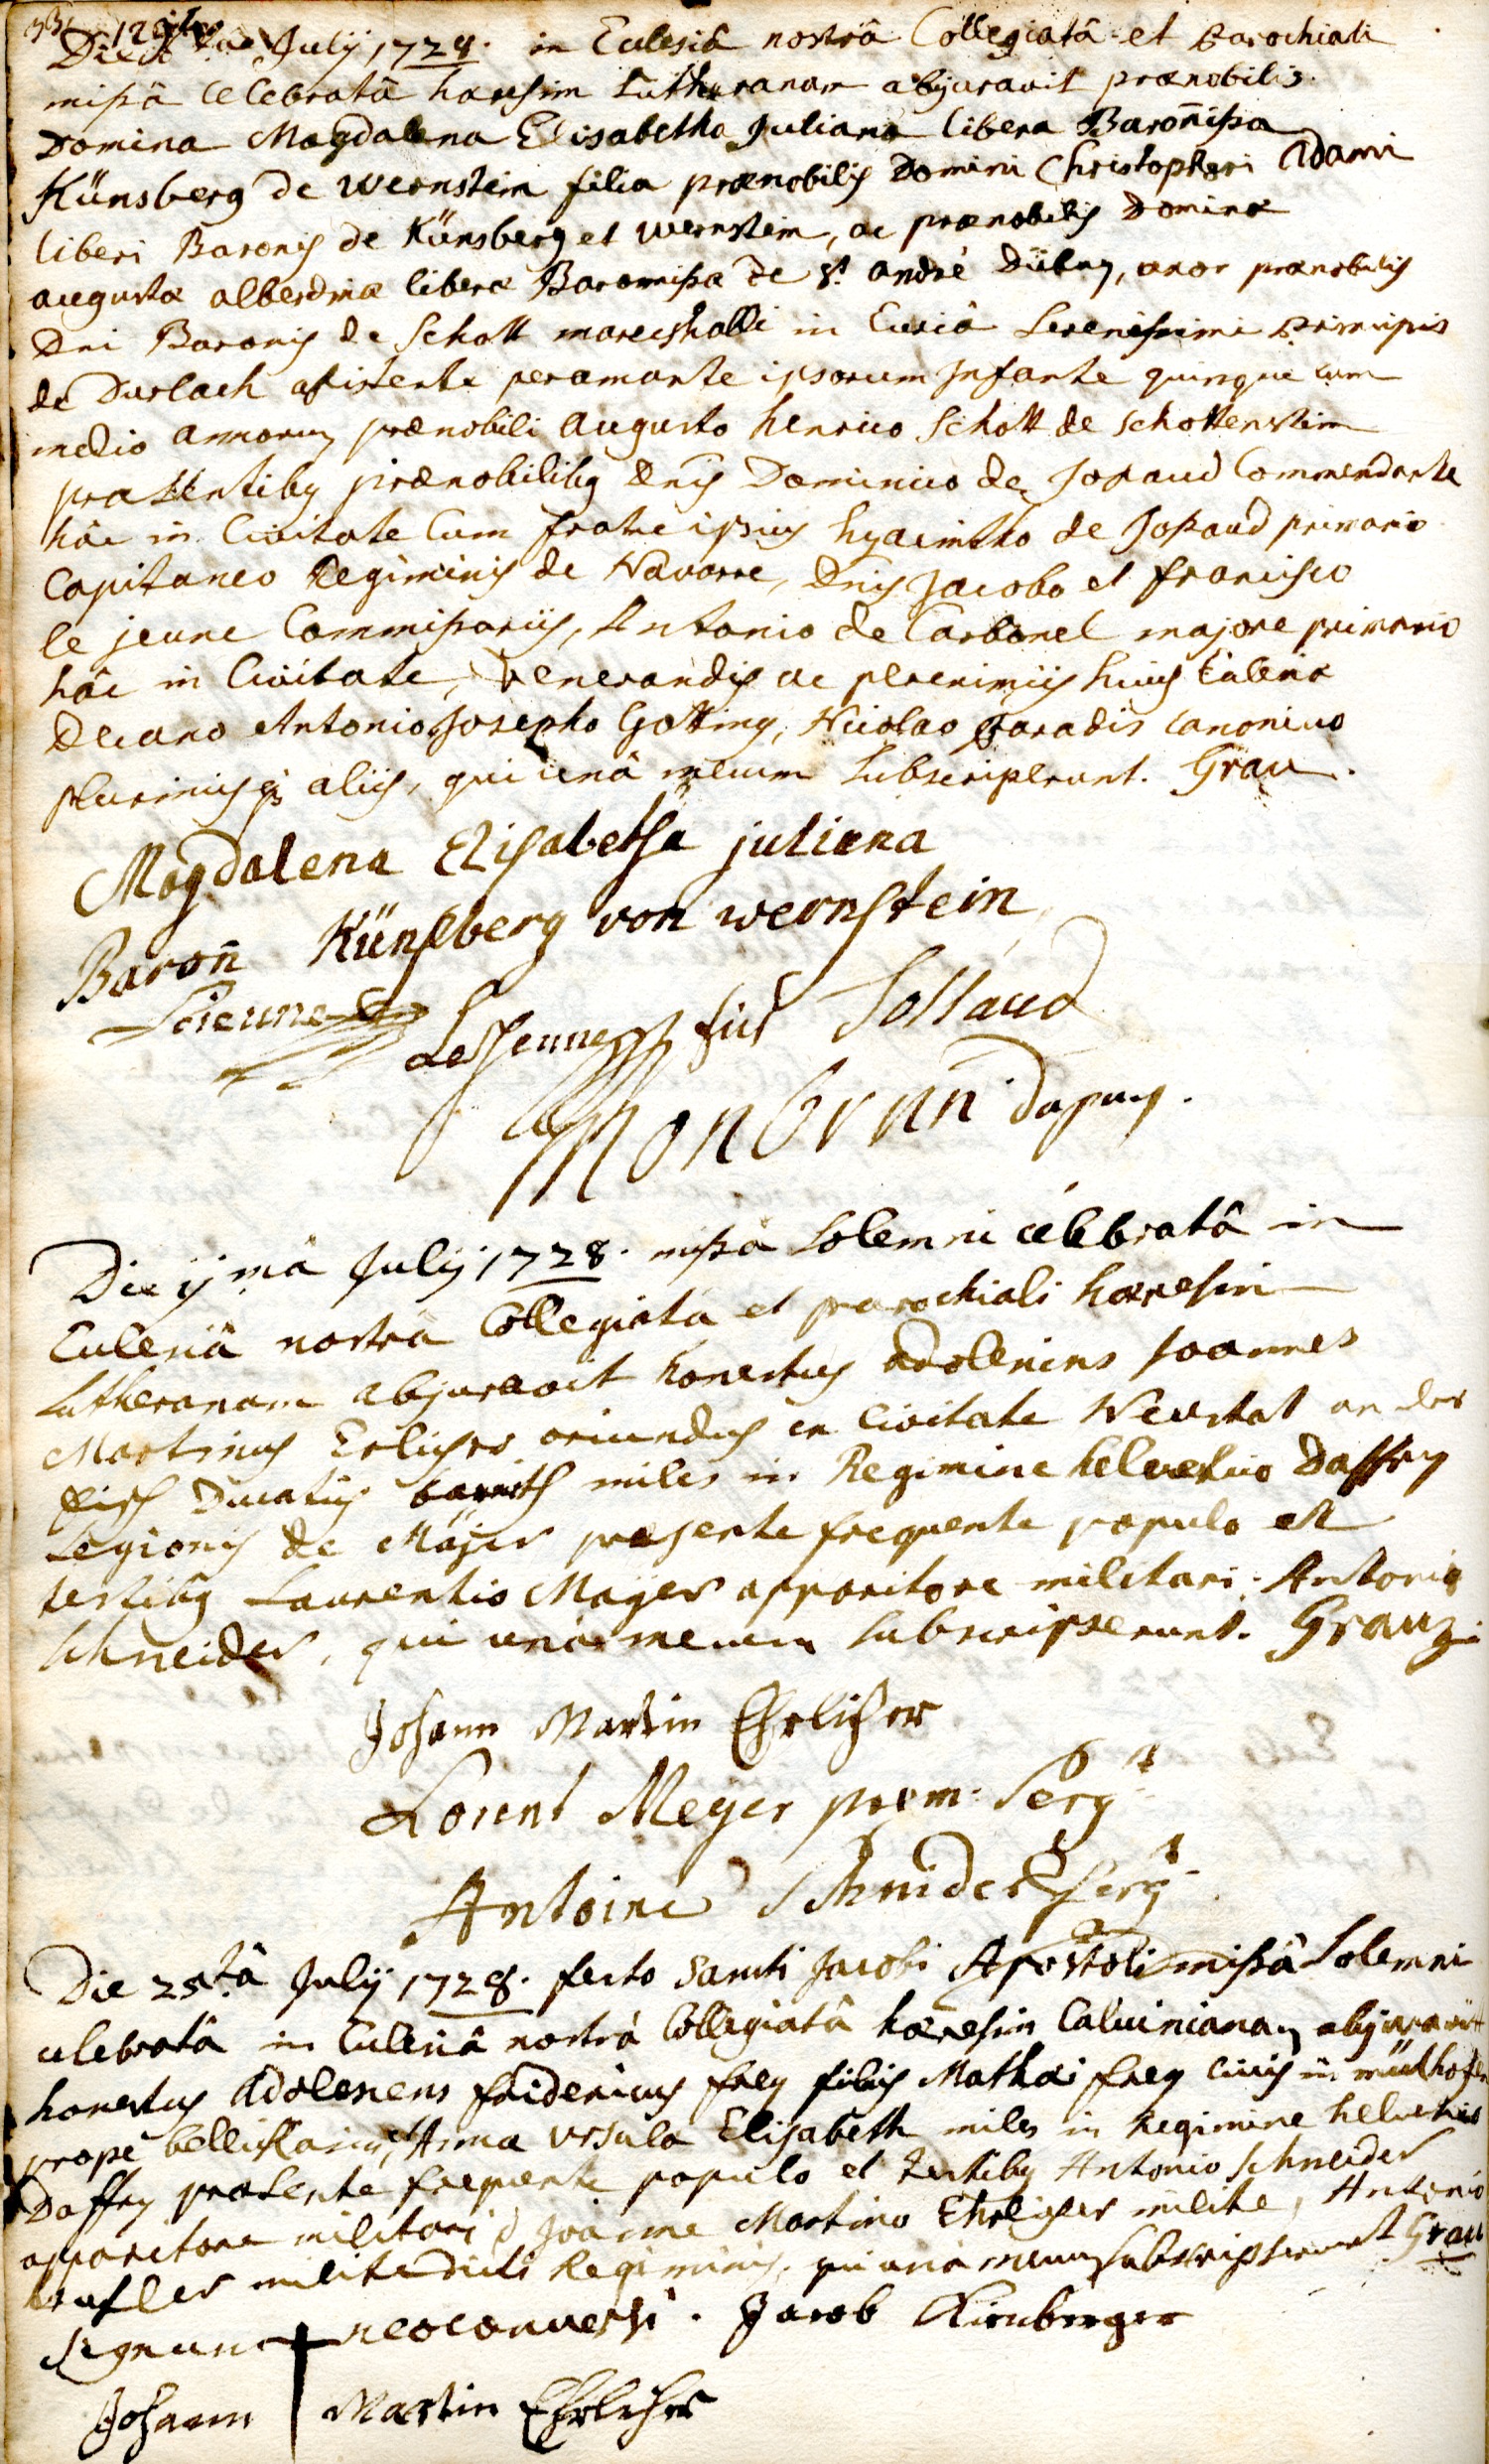 Die July 1728. in Ecclesiâ nostrâ Collegiatâ et Parochiali
missâ celebratâ hæresim Lutheranam abjuravit prænobilis
Domina Magdalena Elisabetha Juliana libera Baronissa
Künsberg de Wernstein filia prænobilis Domini Christophori Adami
liberi Baronis de Künsberg et Wernstein, ac prænobilis Dominæ
augustæ albertinæ liberæ Baronissæ de St. andré uxor prænobilis
Dni Baronis de Schott mareschalli in Curiâ Serenissimi Principis
de Durlach assistente peramante ipsorum Infante quinque cum
medio annorum prænobili Augusto henrico Schott de Schottenstein
præsentibus prænobilibus Dnis Dominico de Jossaud Commendante
hâc in Civitate cum fratre ipsius hyacintho de Jossaud primario
Capitaneo Regiminis de Navarre, Dnis Jacobo et francisco
le jeune Commissariis, Antonio de Carbonel majore primario
hâc in Civitate, Venerandis ac plerenimiis huius Eccleriæ
Decano Antonio Josepho Gotting, Nicolao Paradis canonico
plurimisqz aliis, qui unâ mecum subscripserunt. Grau.
Magdalena Elisabetha juliana
Baron̄ Künsberg von wernstein
Lejeune LeJeune fils Jossaud
Monbrun Dupuy.
Die ij mâ July 1728. missâ solemni celebratâ in
Ecclesiâ nostrâ Collegiatâ et parochiali hæresin
Lutheranam abjuravit honestus adolescens Joannes
Martinus Erlicher oriundus ex Civitate Neustat an der
Eisch Ducatûs bareith miles in Regimine helvetico Daffry
Legionis de Mäjer presente frequente populo et
testibus Laurentio Mayer apparitore militari. Antonio
Schneider, qui unâ mecum subscripserunt. Grau
Johann Martin Ehrlicher
Lorent Meyer prem: Sergt
Antoine Schnider Sergt
Die 25tâ July 1728. festo Sancti Jacobi Apostoli missâ Solemni
celebratâ in Ecclesiâ nostrâ Collegiatâ hæresin Calvinianam abjuravit
honestus Adolescens fridericus frey filius Mathæi frey civis in mülhosen
prope et Anna Ursula Elisabeth miles in Regimine helvetico
Daffry præsente frequente populo et testibus Antonio Schneider
apparitore militari Joanne Martino Ehrlicher milite, Antonio
milite dicti Regiminis, qui unâ mecum subscripserunt Grau
Signum + neoconversi. Jacob Kirnberger
Johann Martin Ehrlicher